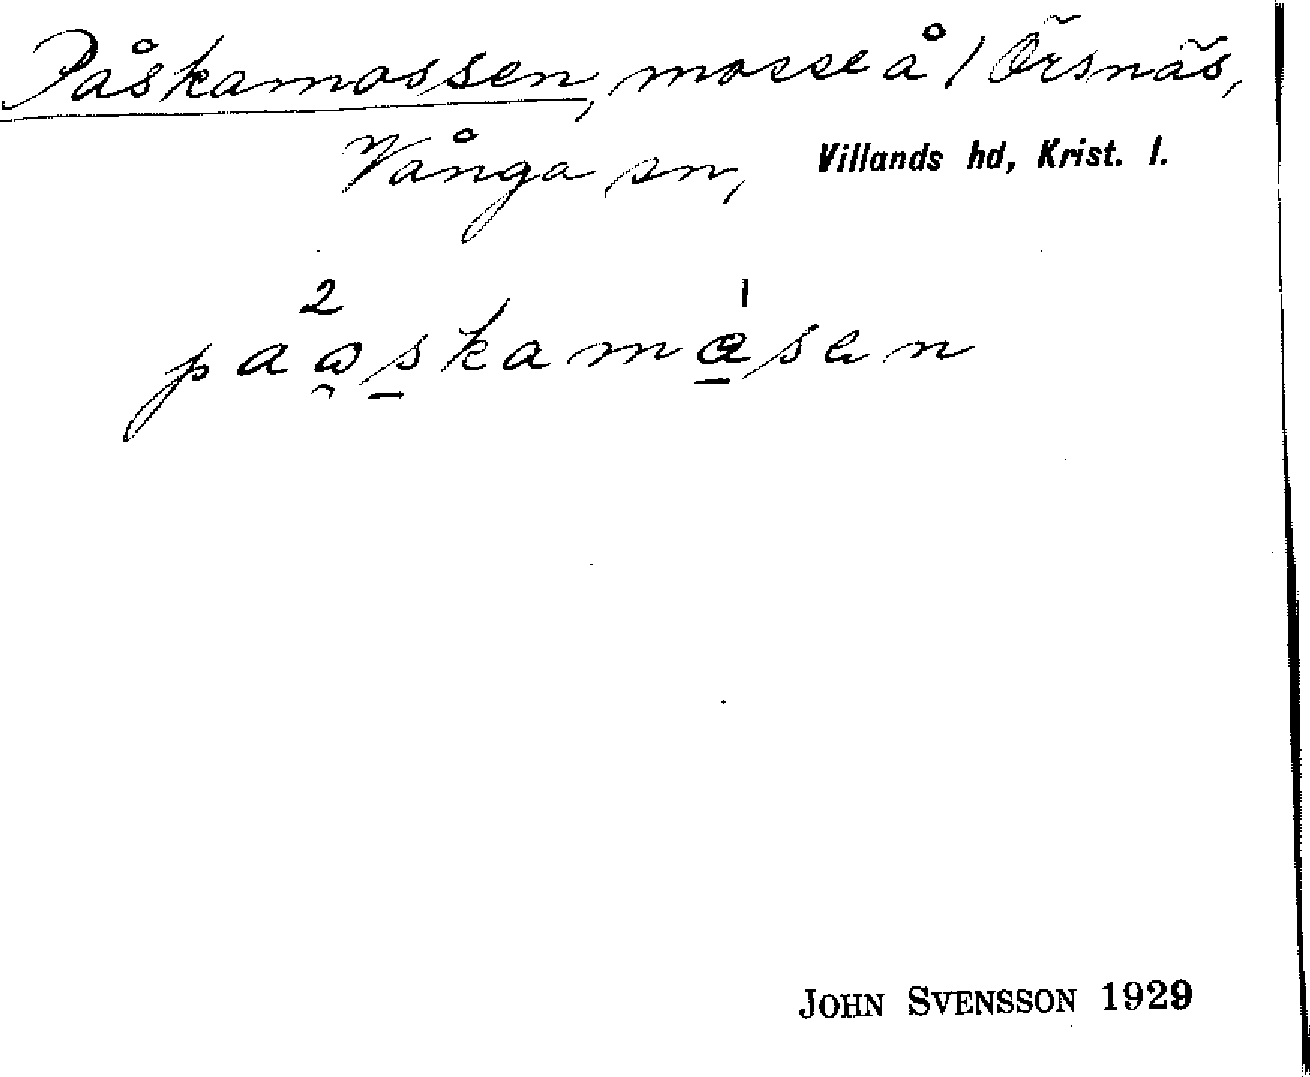 Påskamossen, mosse å / Örsnäs,
Vånga sn, Villands hd, Krist. l.
2 1
paoskamosen
JOHN SVENSSON 1929